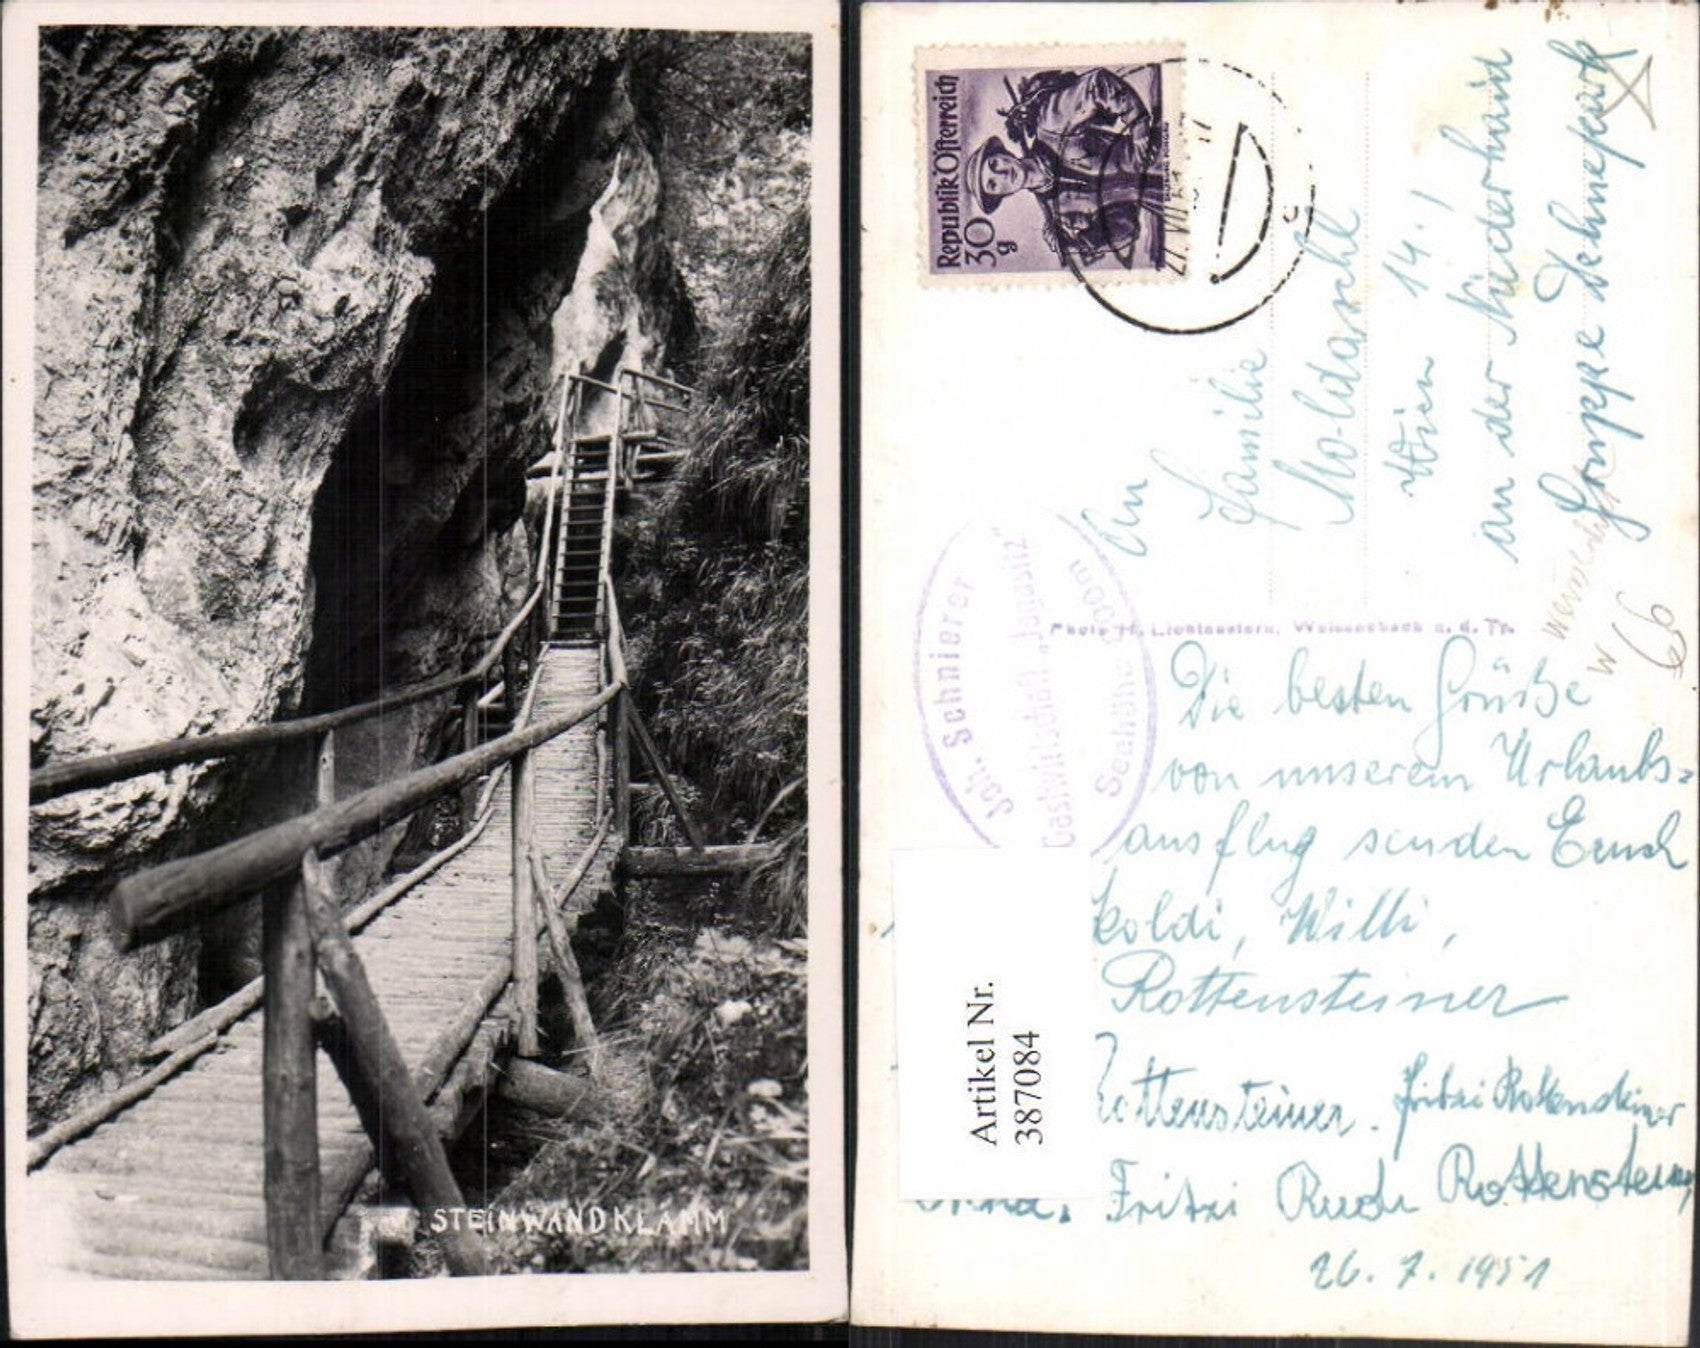 STEINWANDKLAMM
Republik Österreich
30
g
27. VII.
An
Familie
Moldaschl
Wien 14.!
an der Niederhaid
Gruppe
Photo H. Lichtenstern, Weissenbach a. d. Tr.
Joh. Schnierer
Gastwirtschaft „Jagasitz"
Seehöhe
W
66
Die besten Grüße
von unserem Urlaubs=
ausflug senden Euch
koldi, Willi,
Rottensteiner
Rottensteiner. Fritzi Rottensteiner
Fritzi Rudi Rottensteiner
26. 7. 1951
Artikel Nr.
387084